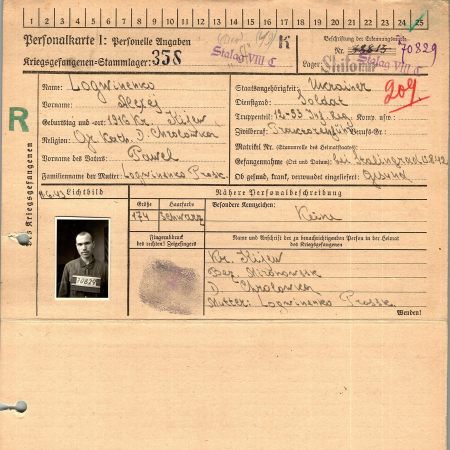 1 2 3 4 5 6 7 8 9 10 11 12 13 14 15 16 17 18 19 20 21 22 23 24 25
Personalkarte I: Personelle Angaben
Kriegsgefangenen-Stammlager: 358
Stalag VIII C
K
Beschriftung der Erkennungsmarke
Nr. 70829
Lager: Stalag VIII C
Name: Logwinenko
Vorname: Alexej
Geburtstag und -ort: 1916 Kr. Kiew
Religion: Gr. Kath. D. Chrolowka
Vorname des Vaters: Pawel
Familienname der Mutter: Logwinenko
Staatsangehörigkeit: Ukrainer
Dienstgrad: Soldat
Truppenteil: Komp. usw.:
Zivilberuf: Berufs-Gr.
Matrikel Nr. (Stammrolle des Heimatstaates):
Gefangennahme (Ort und Datum): bei Stalingrad
Ob gesund, krank, verwundet eingeliefert: Gesund
209
R
Des Kriegsgefangenen
Lichtbild
Nähere Personalbeschreibung
Größe
Haarfarbe
Besondere Kennzeichen:
174
Schwarz
Keine
Fingerabdruck
des rechten! Zeigefingers
Name und Anschrift der zu benachrichtigenden Person in der Heimat
des Kriegsgefangenen
70829
Kr. Kiew
Bez. Mironowsk
D. Chrolowka
Mutter: Logwinenko
Wenden!